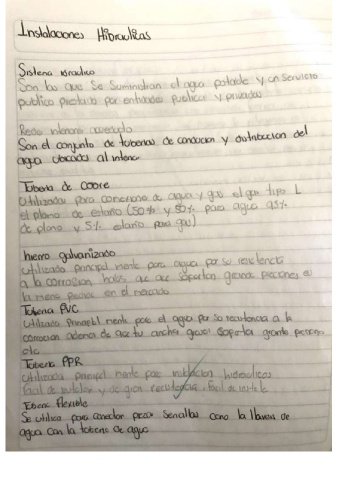 Instalaciones Hibraulicas
Sistema
Son las que se Suministran el agua potable y un Servicio
publico prestado por entidades publicas y privadas
Redes internas acueducto
Son el conjunto de tuberias de conducion y distribucion del
agua ubicadas al interior
Tuberia de cobre
Utilizadas para conexiones de agua y gas el gas tipo L
el plomo de estaño (50% y 50% para agua 95%
de plomo y 5% estaño para gas)
hierro galvanizado
utilizado principal mente para agua por su resistencia
a la corrosion que soportan grande
en el mercado
Tuberia PVC
Utilizado Principal mente para el agua por so resistencia a la
corrosion ademas de que Soporta grande
etc
Tuberia PPR
Utilizada principal mente para
facil de y de gran resistencia, facil de
flexible
Se utiliza para conectar piezas Sencillas como la llaves de
agua con la tuberia de agua